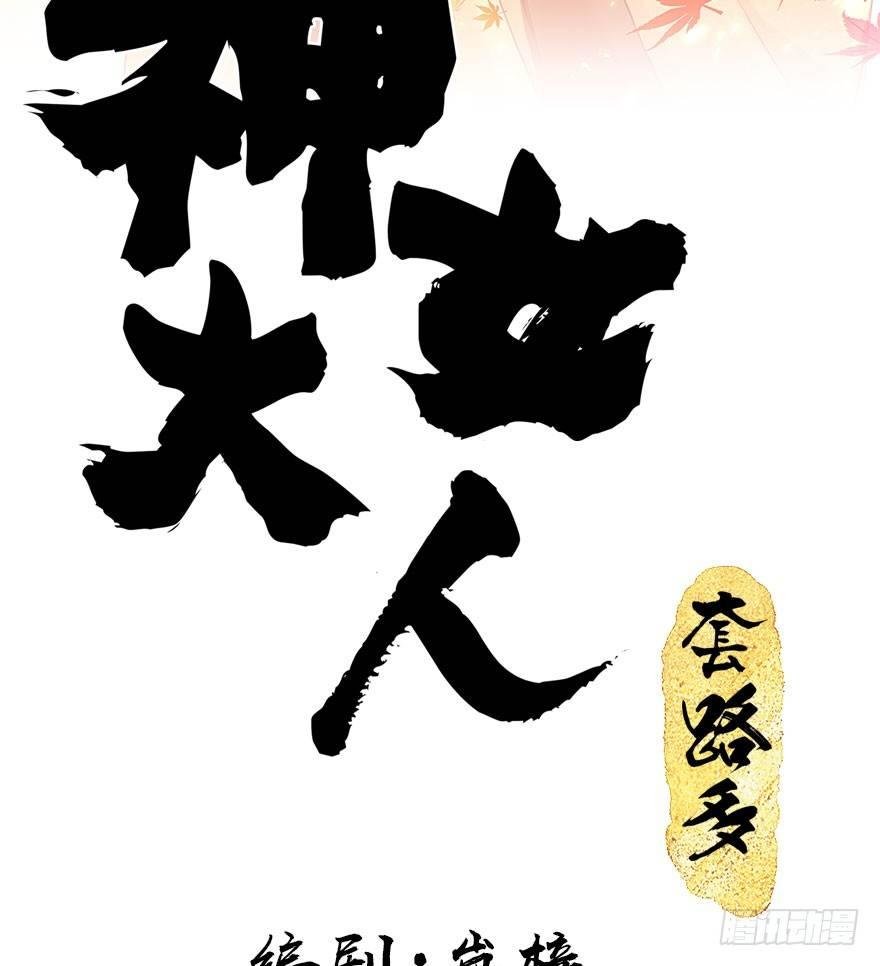 神女
大人
套路多
编剧：
腾讯动漫